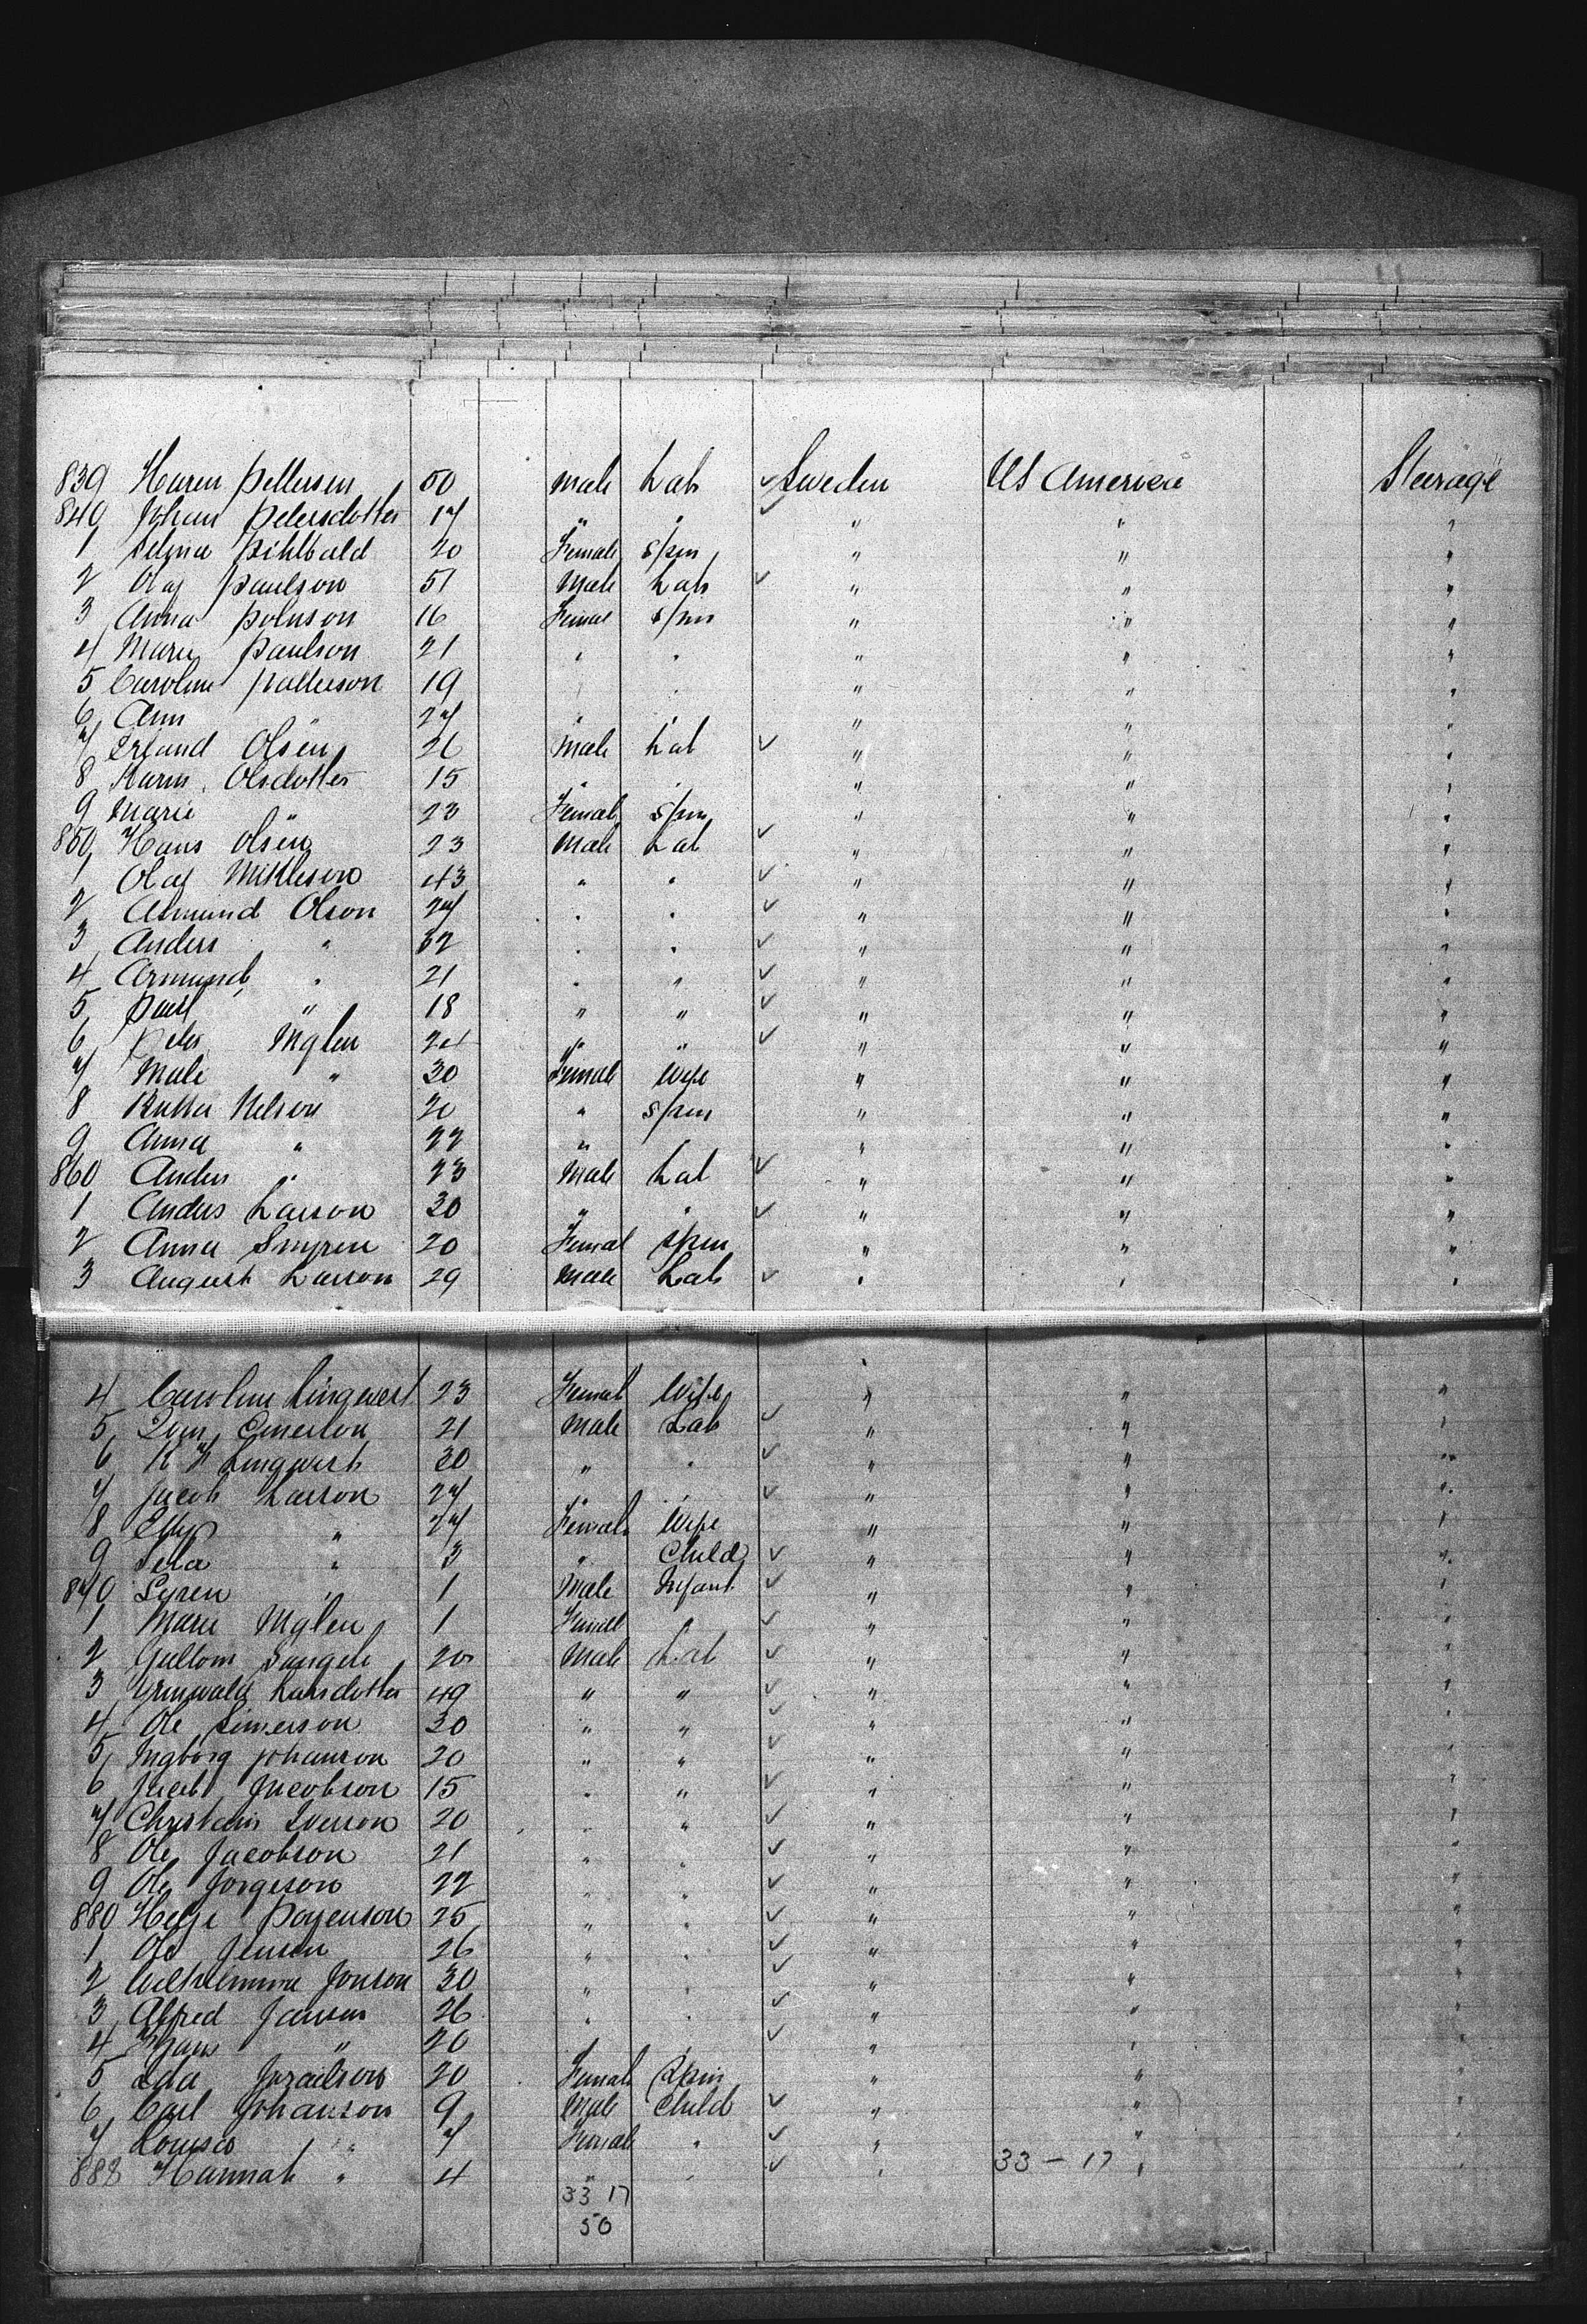 839 Haren Pettersen 50 Male Lab ✓ Sweden US America Steerage
840 Johan Petersdotter 17 " " ✓ " " "
1 Selma Pihlbald 20 Female Spin " " "
2 Olaf Paulson 51 Male Lab ✓ " " "
3 Anna Polnson 16 Female Spin " " "
4 Marie Paulson 21 " " " " "
5 Caroline Patterson 19 " " " " "
6 Ann " 27 " " " " "
7 Erland Olsen 26 Male Lab ✓ " " "
8 Karin Olsdotter 15 " " " " "
9 Marie " 23 Female Spin " " "
850 Hans Olsen 23 Male Lab ✓ " " "
1 Olaf Mikkleson 43 " " ✓ " " "
2 Almund Olson 27 " " ✓ " " "
3 Anders " 32 " " ✓ " " "
4 Armund " 21 " " ✓ " " "
5 Paul " 18 " " ✓ " " "
6 Peter Inglen 24 " " ✓ " " "
7 Male " 30 Female Wife " " "
8 Nelson 20 " Spin " " "
9 Anna " 22 " " " " "
860 Anders " 23 Male Lab ✓ " " "
1 Anders Larson 30 " " ✓ " " "
2 Anna 20 Female Spin " " "
3 August Larson 29 Male Lab ✓ " " "
4 Caroline Lingwest 23 Female Wife " " "
5 Emerson 21 Male Lab ✓ " " "
6 K Lingwest 30 " " ✓ " " "
7 Jacob Larson 27 " " ✓ " " "
8 " 27 Female Wife " " "
9 " 3 " Child ✓ " " "
870 Syren " 1 Male Infant ✓ " " "
1 Marie Inglen 1 Female " ✓ " " "
2 20 Male Lab ✓ " " "
3 Larsdotter 49 " " ✓ " " "
4 Ole Simerson 30 " " ✓ " " "
5 Ingborg Johanson 20 " " ✓ " " "
6 Jacob Jacobson 15 " " ✓ " " "
7 Iverson 20 " " ✓ " " "
8 Ole Jacobson 21 " " ✓ " " "
9 Ole Jorgeson 22 " " ✓ " " "
880 Helge 25 " " ✓ " " "
1 Ole Jensen 26 " " ✓ " " "
2 Wilhelmina Jonson 30 " " ✓ " " "
3 Alfred Jansen 26 " " ✓ " " "
4 " 20 " " ✓ " " "
5 Ida Israelson 20 Female Spin " " "
6 Carl Johanson 9 Male Child ✓ " " "
7 Louisa " 7 Female " ✓ " " "
888 Hannah " 4 " " ✓ " 33 – 17 " "
33 17
50